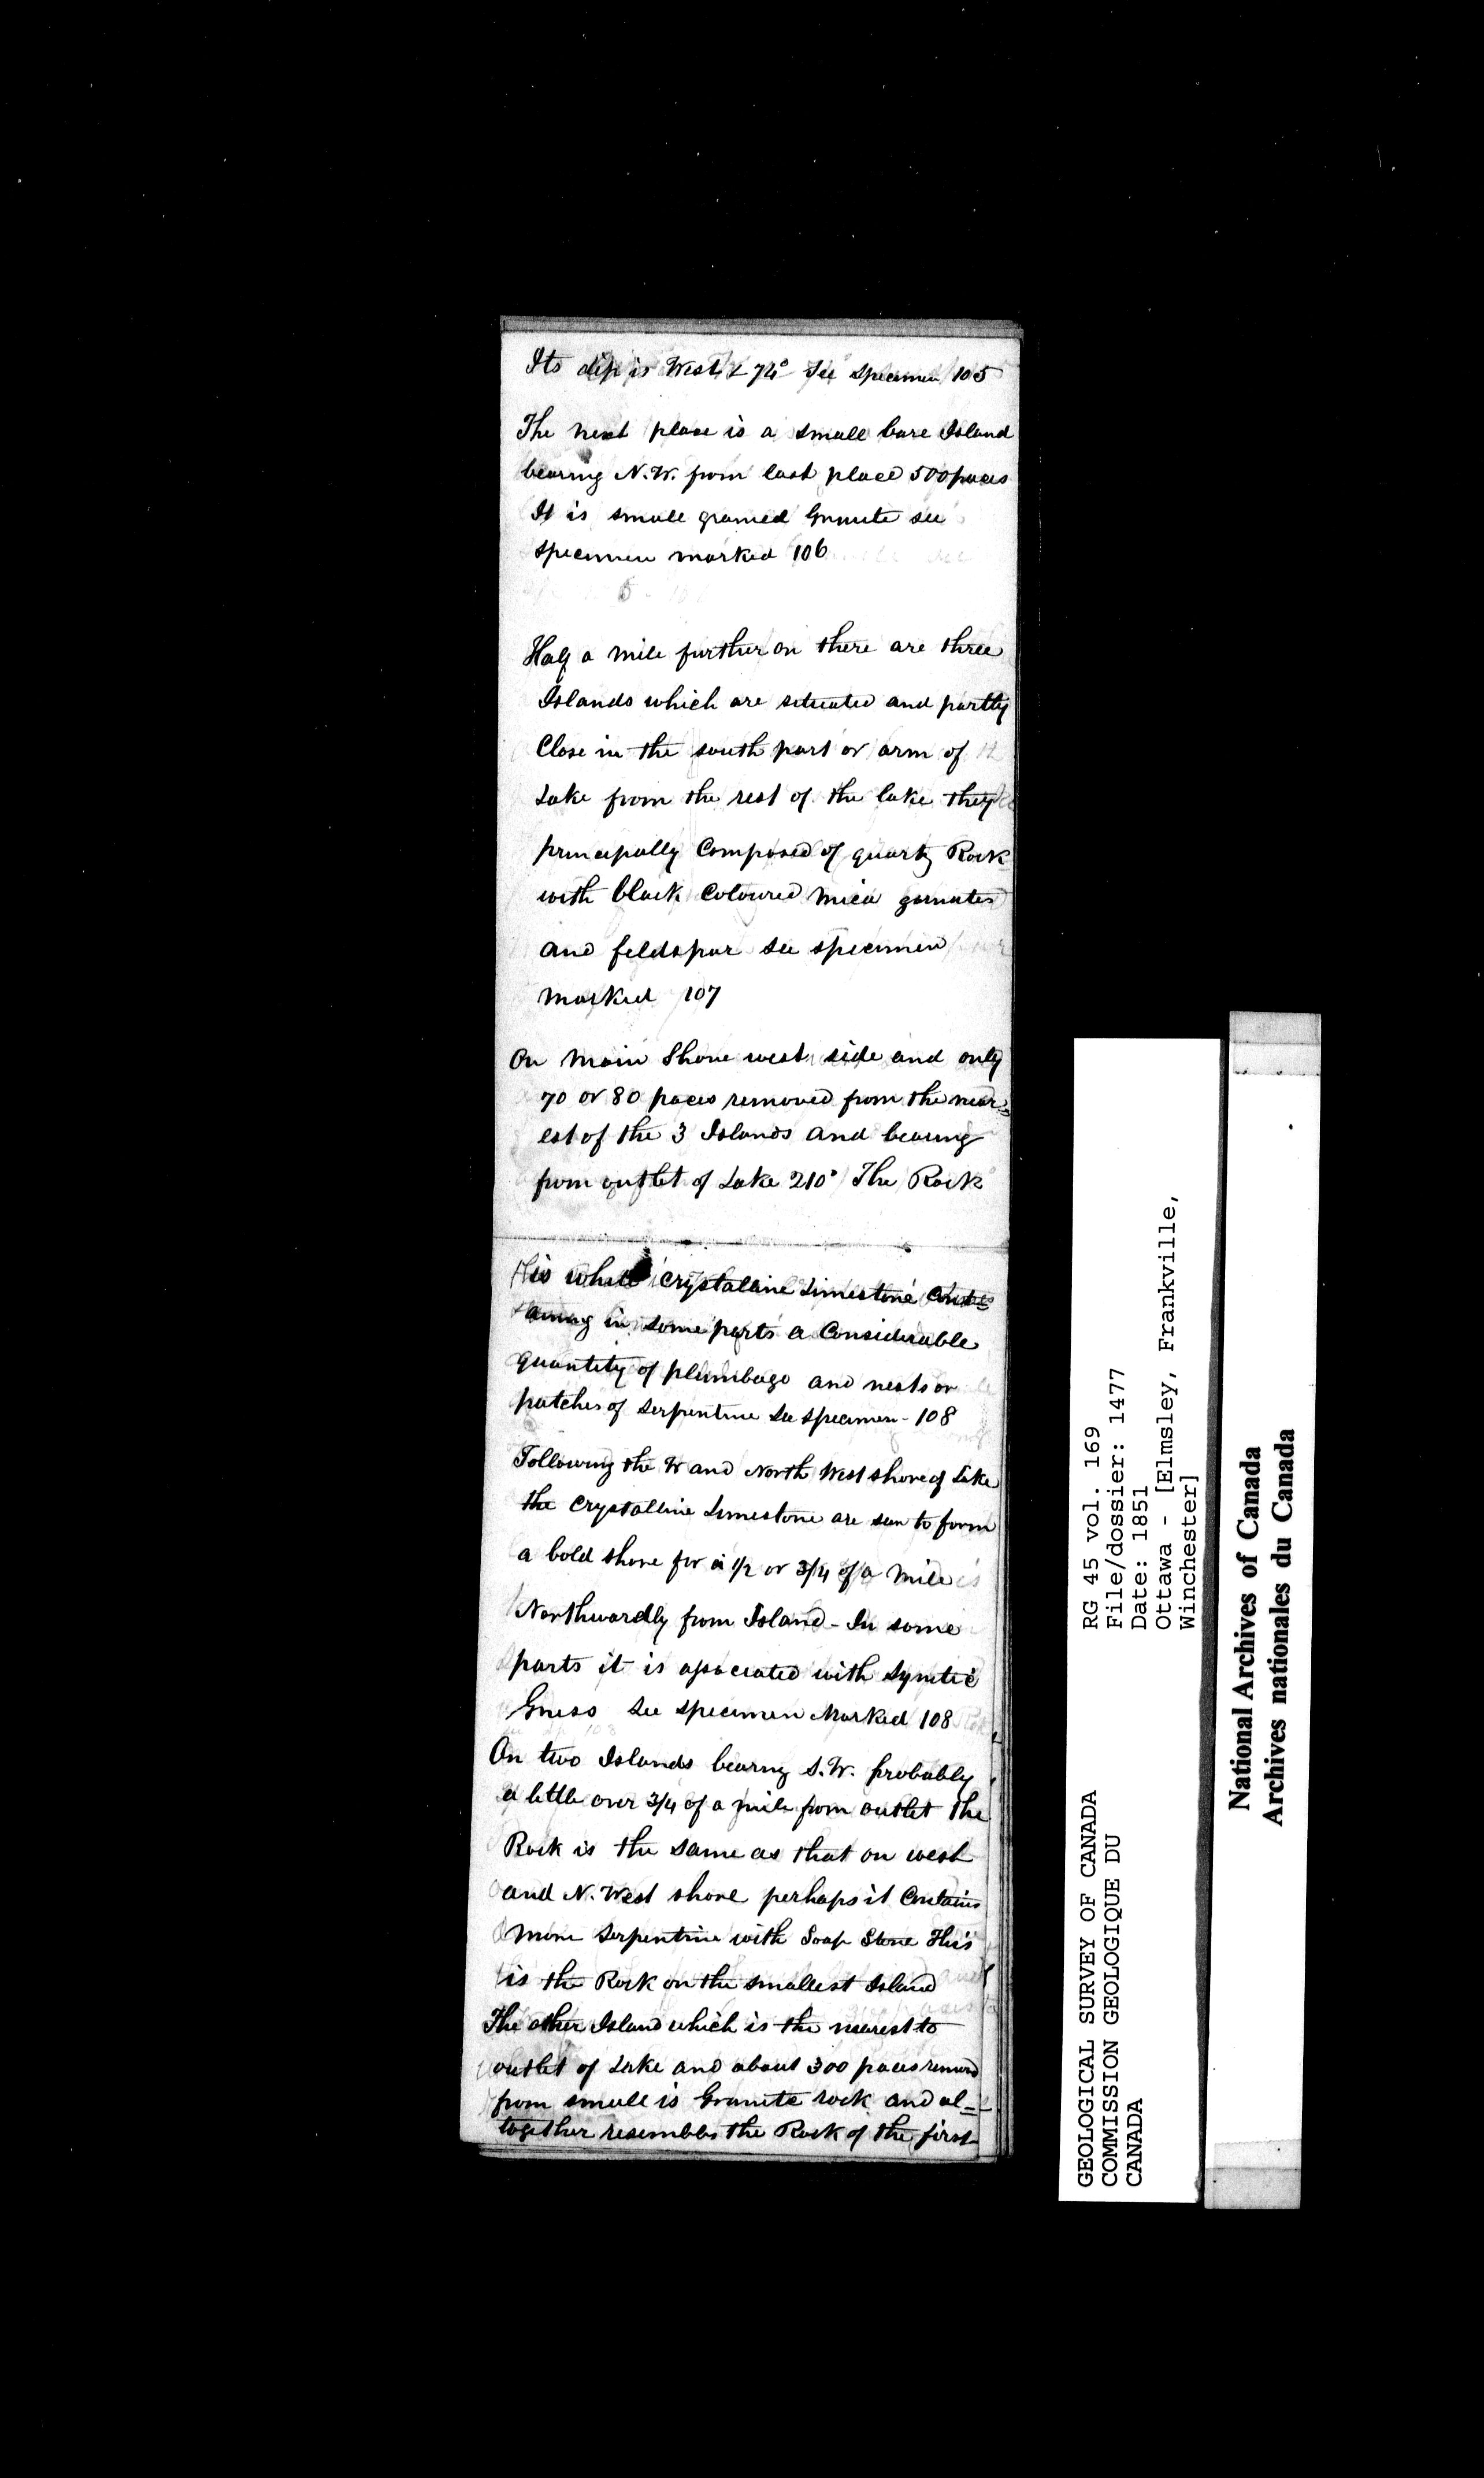 Its dip is West < 74° See specimen 105
The next place is a small bare Island
bearing N.W. from last place 500 paces
It is small grained Granite see
specimen marked 106
Half a mile further on there are three
Islands which are situated and partly
Close in the south part or arm of
Lake from the rest of the lake they
principally Composed of quartz Rock
with black Coloured mica garnates
and feldspar see specimen
marked 107
On Main Shore west side and only
70 or 80 paces removed from the near=
est of the 3 Islands and bearing
from outlet of Lake 210° The Rock
is white crystalline Limestone Cont=
aining in some parts a Considerable
quantity of plumbago and nests or
patches of Serpentine See specimen - 108
Following the W and North West shore of Lake
the Crystalline Limestone are seen to form
a bold shore for a 1/2 or 3/4 of a mile
Northwardly from Island - In some
parts it is associated with Synetic
Gneiss See specimen Marked 108
On two Islands bearing S.W. probably
a little over 3/4 of a mile from outlet the
Rock is the same as that on west
and N. West shore perhaps it Contains
more Serpentine with Soap Stone This
is the Rock on the smallest Island
The other Island which is the nearest to
outlet of Lake and about 300 paces removed
from small is Granite rock and al=
together resembles the Rock of the first
GEOLOGICAL SURVEY OF CANADA
COMMISSION GEOLOGIQUE DU
CANADA
RG 45 vol. 169
File/dossier: 1477
Date: 1851
Ottawa - [Elmsley, Frankville,
Winchester]
National Archives of Canada
Archives nationales du Canada